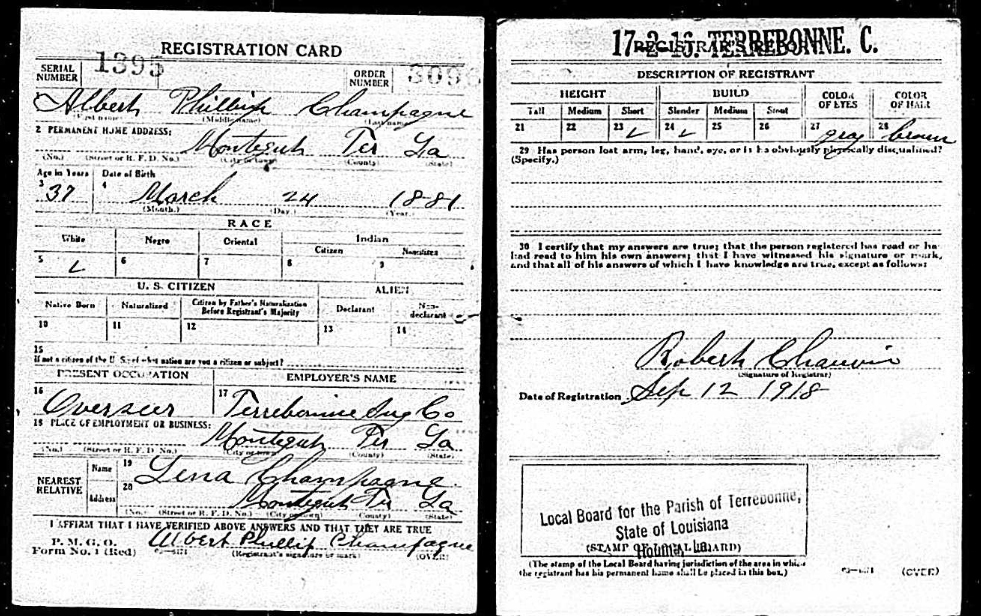 REGISTRATION CARD
SERIAL NUMBER 1395 ORDER NUMBER
Albert Phillip Champagne
(First name) (Middle name) (Last name)
2 PERMANENT HOME ADDRESS:
Montegut Ter La
(No.) (Street or R. F. D. No.) (City or town) (County) (State)
Age in Years Date of Birth
3 37 4 March 24 1881
(Month.) (Day.) (Year.)
RACE
White Negro Oriental Indian
Citizen Noncitizen
5 6 7 8 9
U. S. CITIZEN ALIEN
Native Born Naturalized Citizen by Father's Naturalization Before Registrant's Majority Declarant Non-declarant
10 11 12 13 14
15
If not a citizen of the U. S., of what nation are you a citizen or subject?
PRESENT OCCUPATION EMPLOYER'S NAME
16 Overseer 17 Terrebonne Sug Co
18 PLACE OF EMPLOYMENT OR BUSINESS:
Montegut Ter La
(No.) (Street or R. F. D. No.) (City or town) (County) (State)
NEAREST RELATIVE Name 19 Lena Champagne
Address 20 Montegut Ter La
(No.) (Street or R. F. D. No.) (City or town) (County) (State)
I AFFIRM THAT I HAVE VERIFIED ABOVE ANSWERS AND THAT THEY ARE TRUE
P. M. G. O.
Form No. 1 (Red) Albert Phillip Champagne
(Registrant's signature or mark) (OVER)
17-2-16. TERREBONNE. C.
REGISTRAR'S REPORT
DESCRIPTION OF REGISTRANT
HEIGHT BUILD COLOR OF EYES COLOR OF HAIR
Tall Medium Short Slender Medium Stout
21 22 23 24 25 26 27 gray 28 brown
29 Has person lost arm, leg, hand, eye, or is he obviously physically disqualified?
(Specify.)
30 I certify that my answers are true; that the person registered has read or has
had read to him his own answers; that I have witnessed his signature or mark,
and that all of his answers of which I have knowledge are true, except as follows:
Robert Chauvin
(Signature of Registrar)
Date of Registration Sep 12 1918
Local Board for the Parish of Terrebonne,
State of Louisiana
Houma, La.
(STAMP OF LOCAL BOARD)
(The stamp of the Local Board having jurisdiction of the area in which
the registrant has his permanent home shall be placed in this box.)
(OVER)